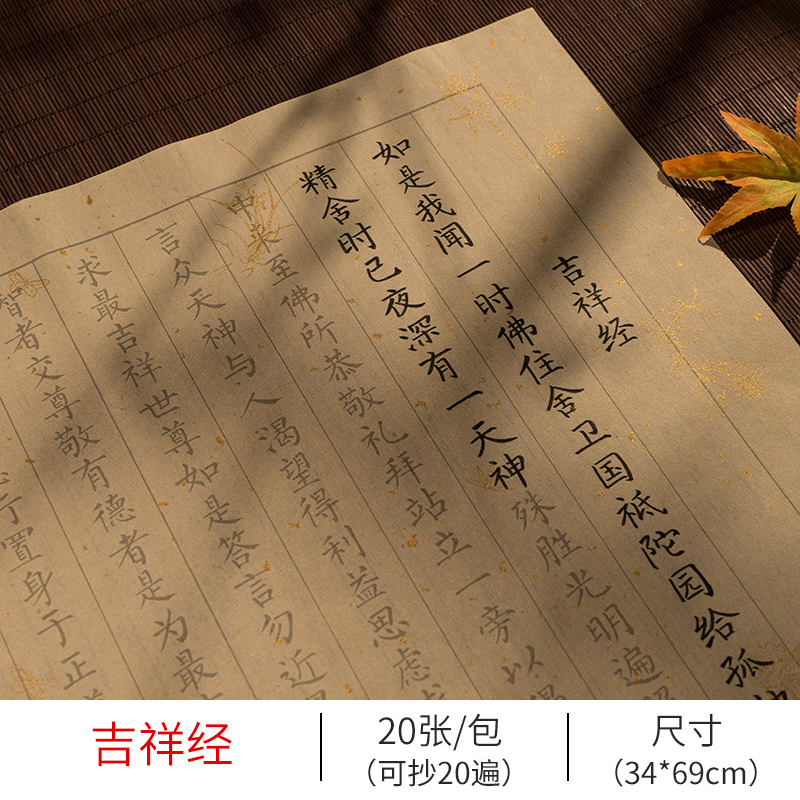 吉祥经
如是我闻一时佛住舍卫国祇陀园给孤
精舍时已夜深有一天神殊胜光明遍
中来至佛所恭敬礼拜站立一旁以
言众天神与人渴望得利益思虑
求最吉祥世尊如是答言勿近
智者交尊敬有德者是为最
于置身于正
吉祥经
20张/包
（可抄20遍）
尺寸
（34*69cm）